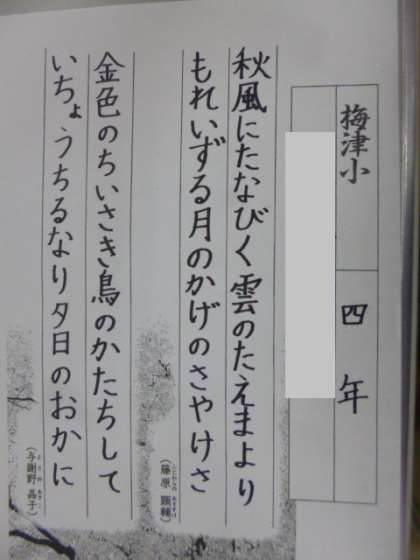 梅津小
四年
秋風にたなびく雲のたえまより
もれいずる月のかげのさやけさ
（藤原顕輔）
ふじわらの あきすけ
金色のちいさき鳥のかたちして
いちょうちるなり夕日のおかに
（与謝野晶子）
よさの あきこ